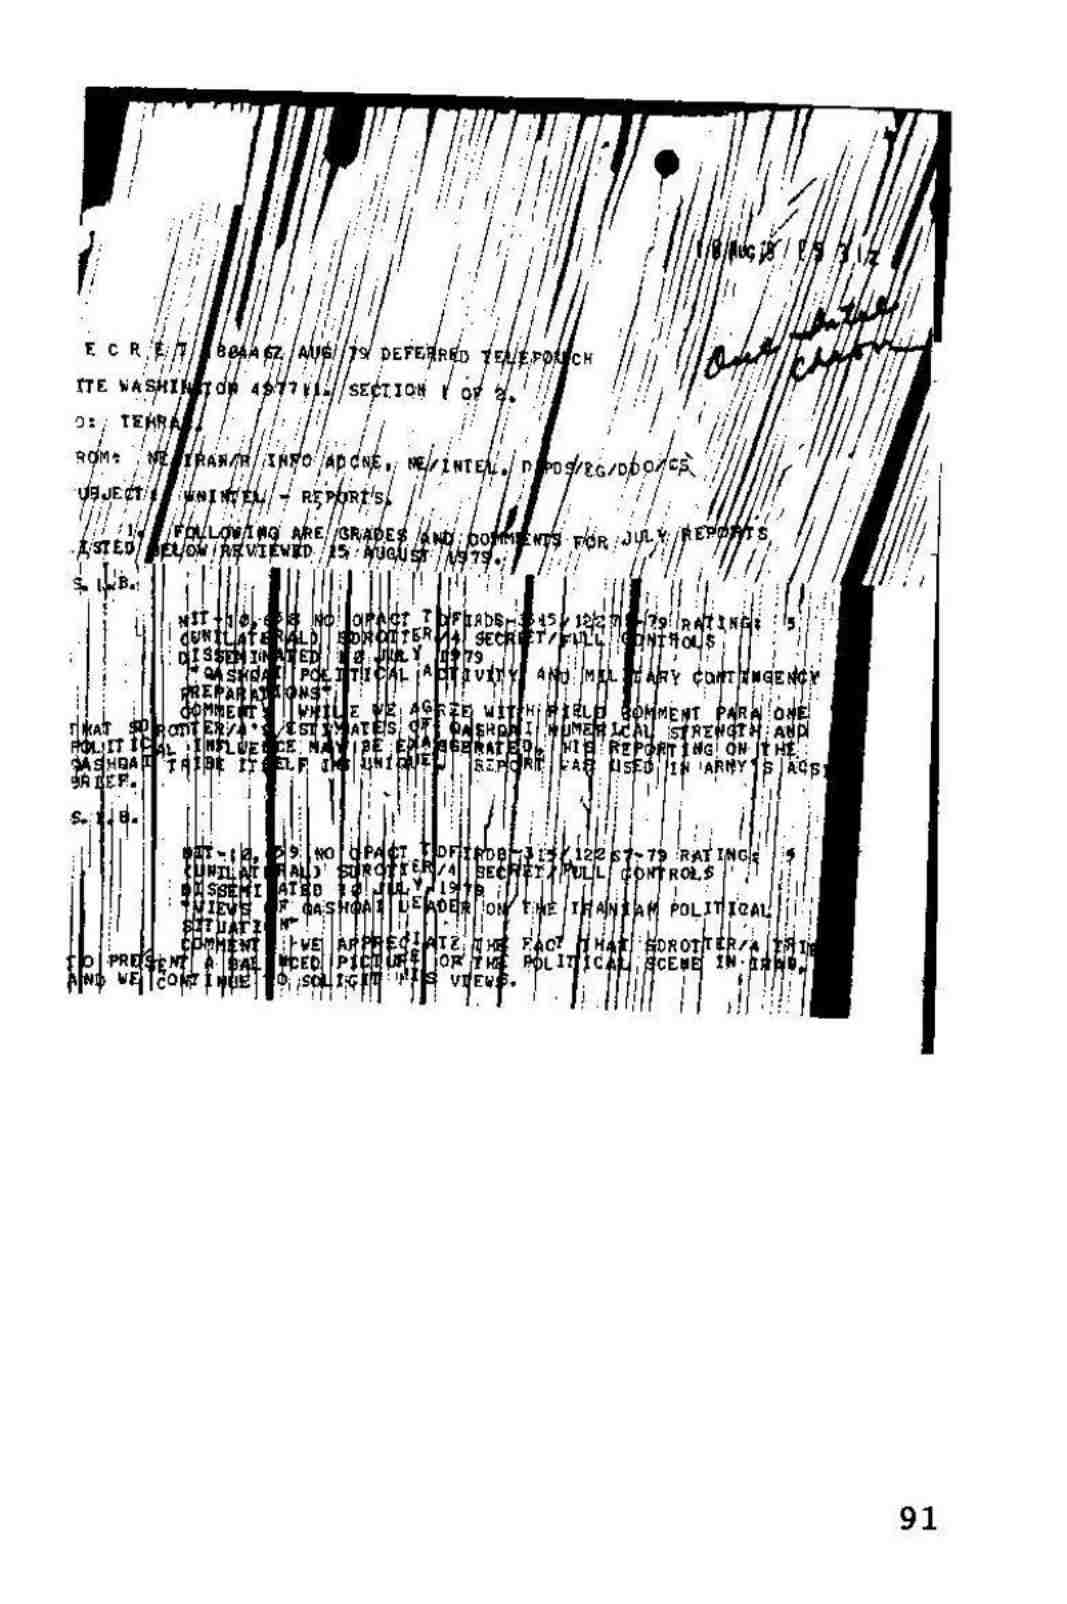 E C R E T 180446Z AUG 79 DEFERRED TELEPOUCH
One Intel
Chron
ITE WASHINGTON 497711. SECTION 1 OF 2.
O: TEHRAN.
ROM: NE/IRAN/R INFO ADCNE, NE/INTEL,
UBJECT: WNINTEL - REPORTS.
1. FOLLOWING ARE GRADES AND COMMENTS FOR JULY REPORTS
LISTED BELOW REVIEWED 15 AUGUST 1979.
S. I. B.
NO OPACT RATING: 5
(UNILATERAL) SDROTTER/4 SECRET/FULL CONTROLS
DISSEMINATED JULY 1979
"QASHQAI POLITICAL ACTIVITY AND MILITARY CONTINGENCY
PREPARATIONS"
COMMENT: WHILE WE AGREE WITH FIELD COMMENT PARA ONE
THAT SDROTTER/4'S ESTIMATES OF QASHQAI NUMERICAL STRENGTH AND
POLITICAL INFLUENCE MAY BE EXAGGERATED, HIS REPORTING ON THE
QASHQAI TRIBE ITSELF IS UNIQUE. REPORT WAS USED IN ARMY'S ACSI
BRIEF.
S. I. B.
NO OPACT RATING: 5
(UNILATERAL) SDROTTER/4 SECRET/FULL CONTROLS
DISSEMINATED JULY 1979
"VIEWS OF QASHQAI LEADER ON THE IRANIAN POLITICAL
SITUATION"
COMMENT: WE APPRECIATE THE FACT THAT SDROTTER/4 TRIE
TO PRESENT A BALANCED PICTURE OF THE POLITICAL SCENE IN IRAN,
AND WE CONTINUE TO SOLICIT HIS VIEWS.
91